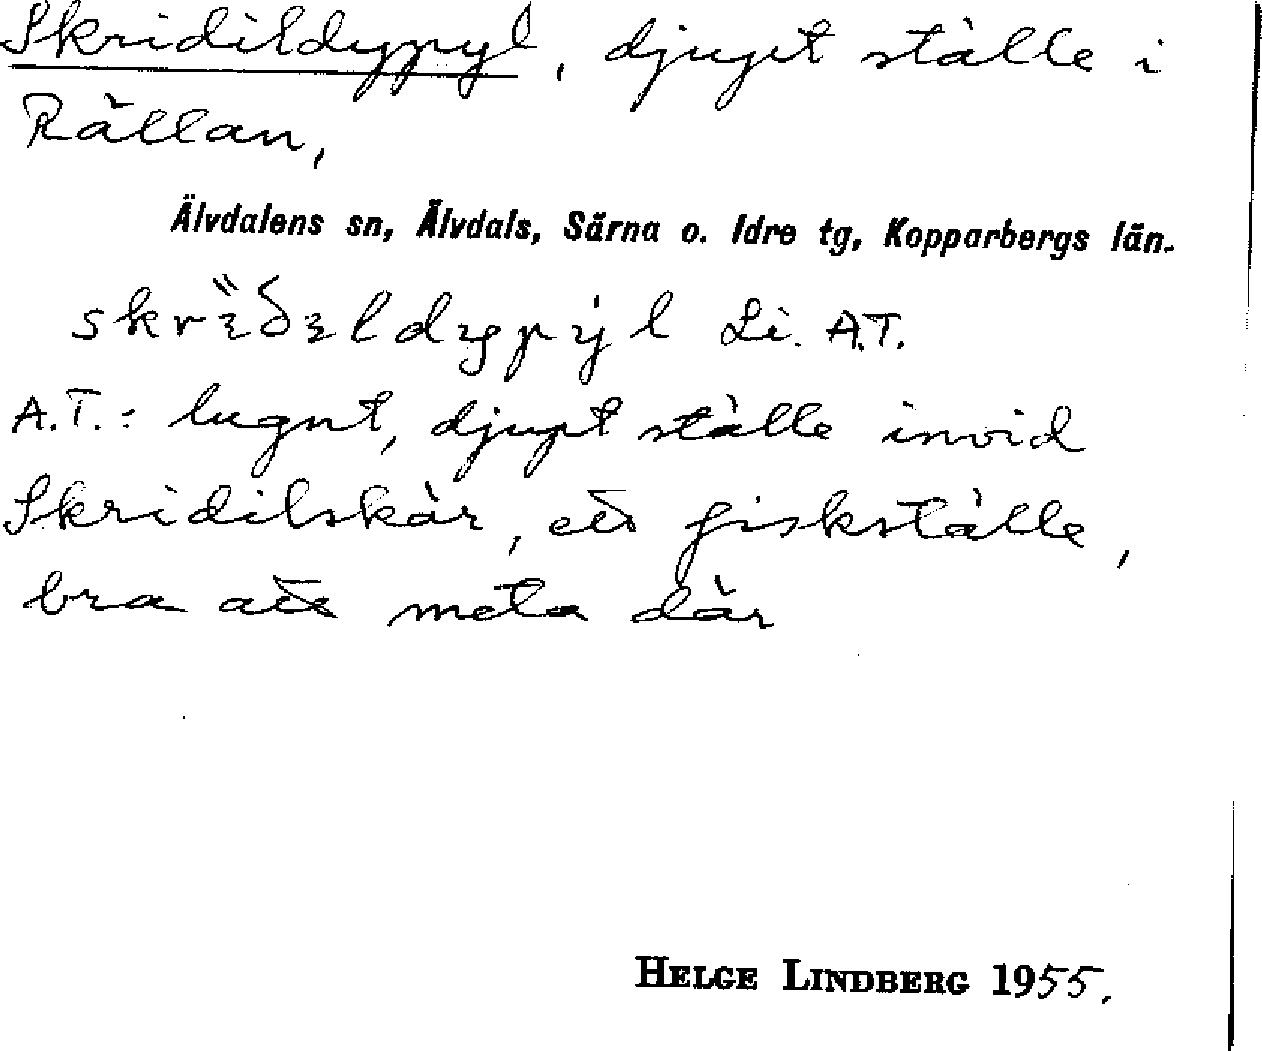 Skridildypyl, djupt ställe i
Rällan,
Älvdalens sn, Älvdals, Särna o. Idre tg, Kopparbergs län.
Li. A.T.
A.T.: lugnt, djupt ställe invid
Skridilskär, ett fiskställe,
bra att meta där
HELGE LINDBERG 1955.